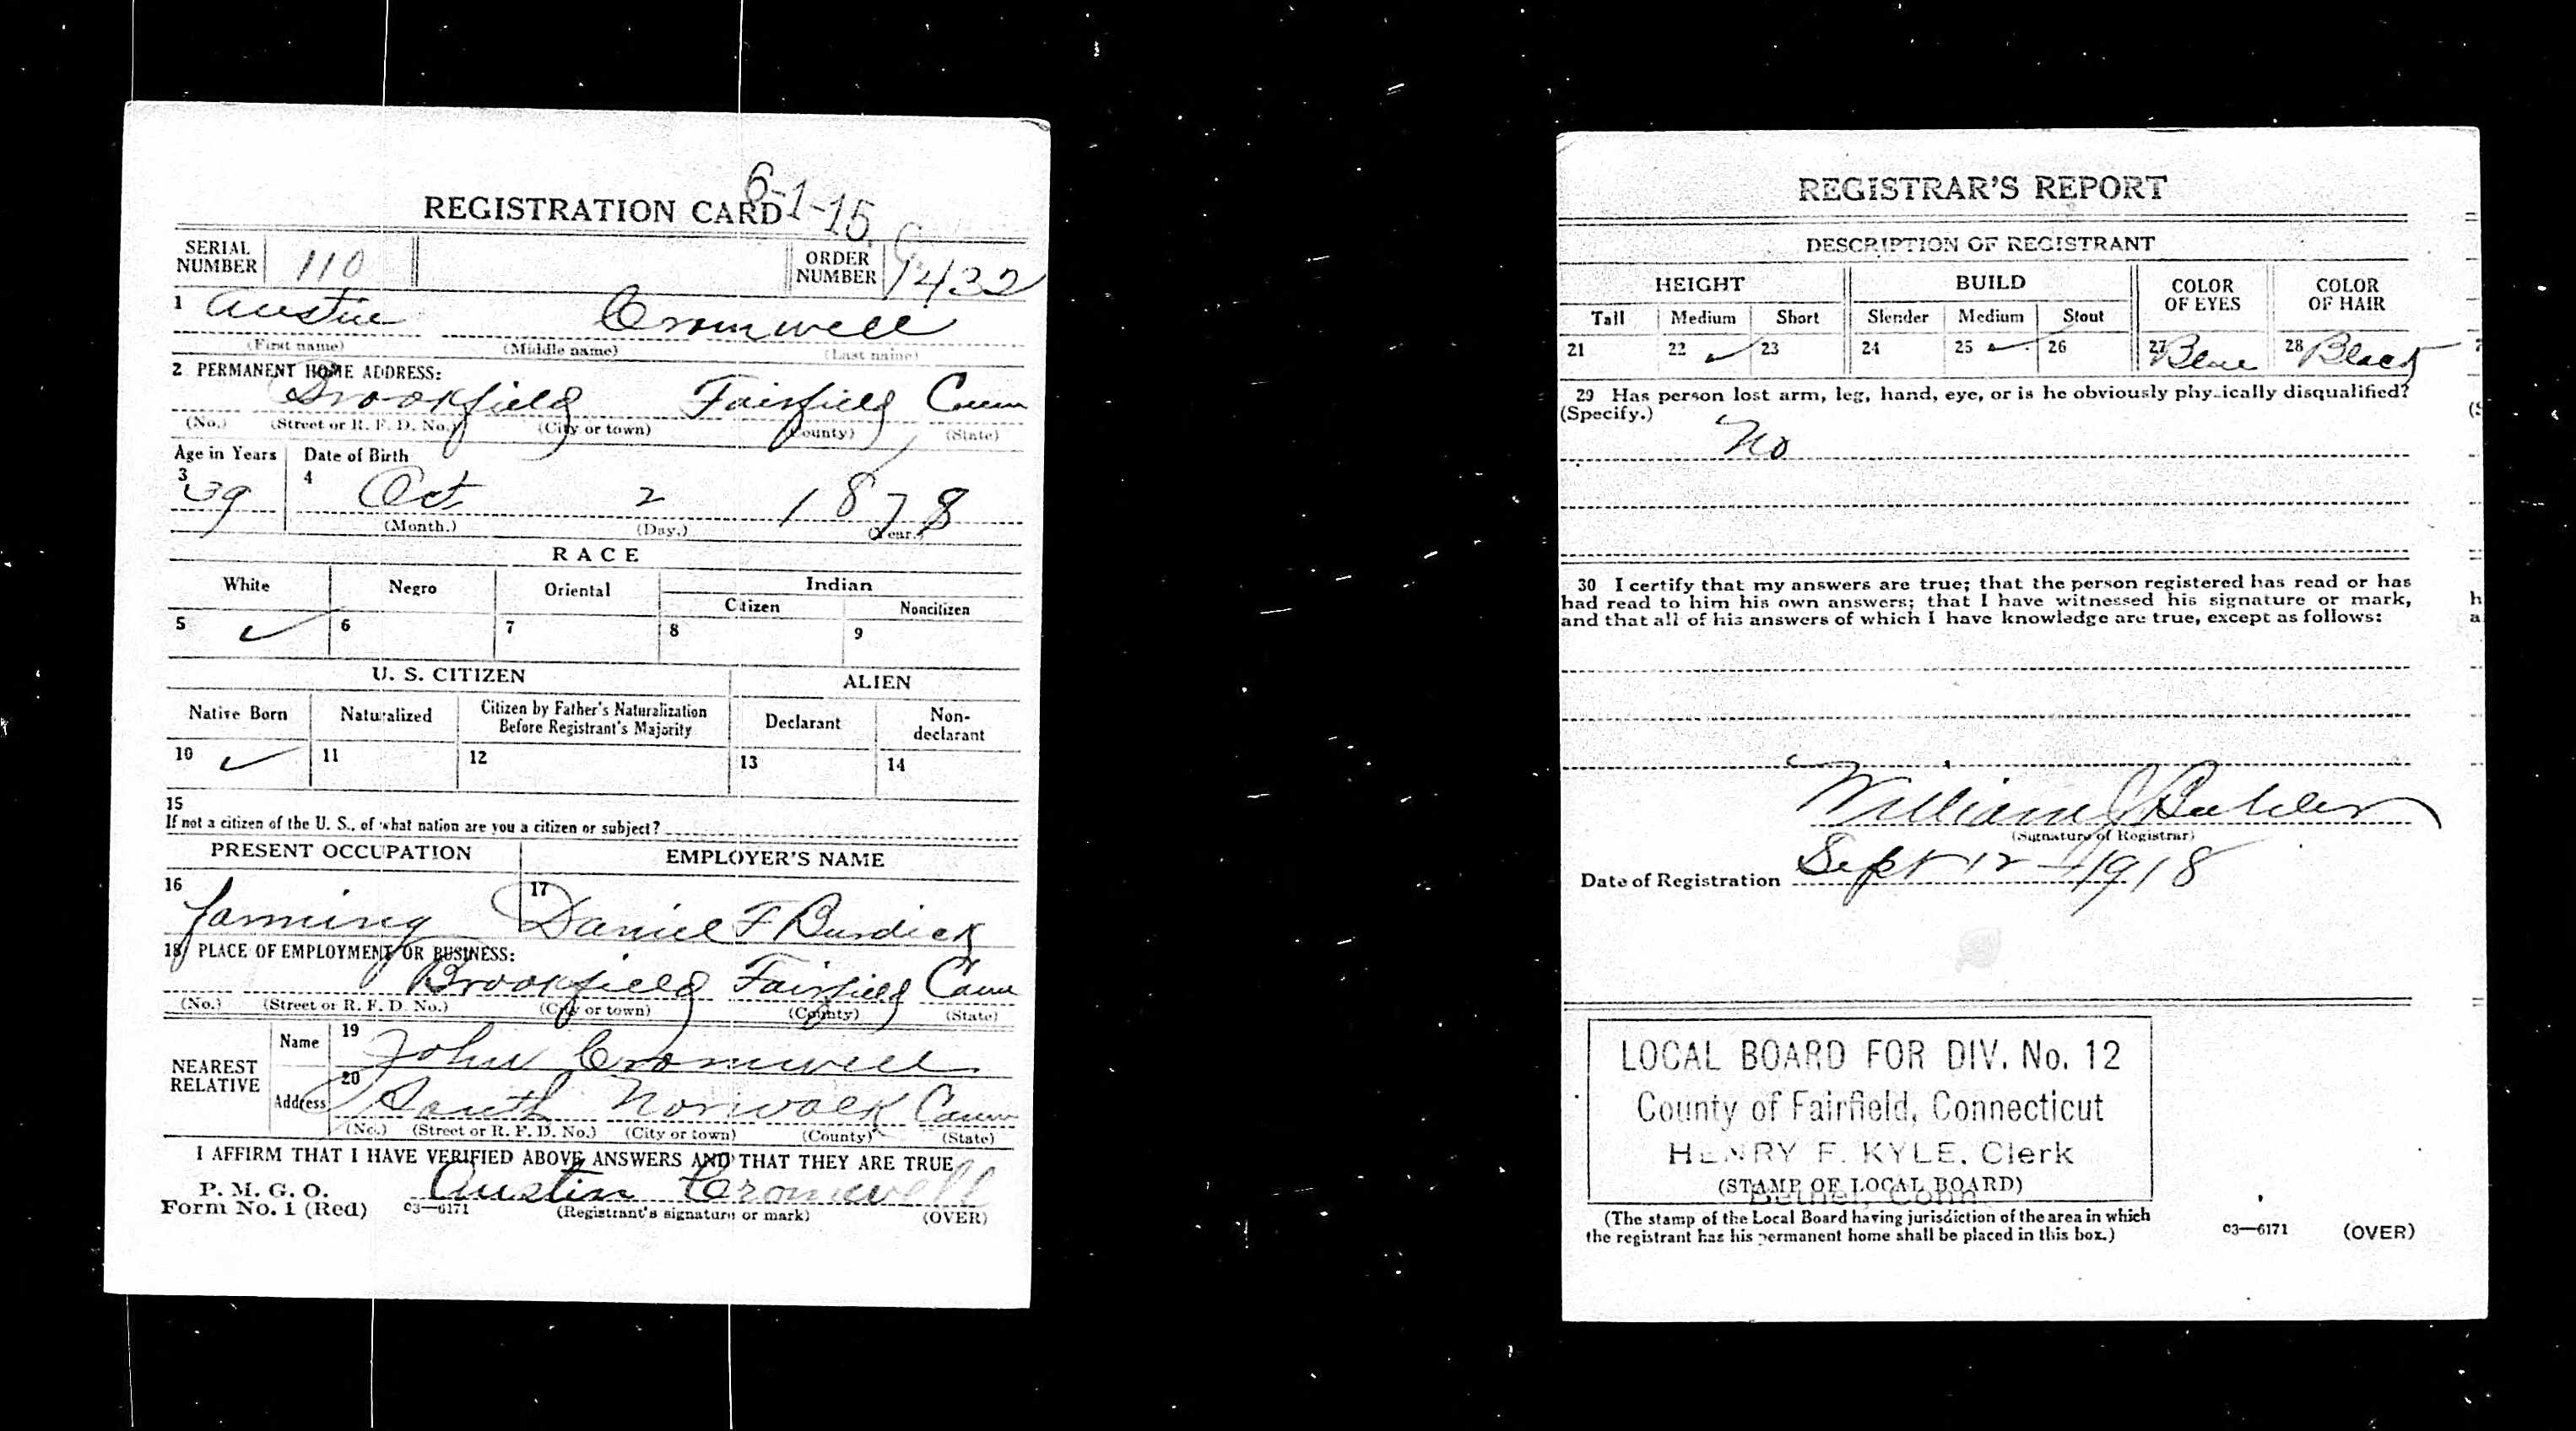 6-1-15
REGISTRATION CARD
SERIAL NUMBER 110 ORDER NUMBER 1432
1 Austin Cromwell
(First name) (Middle name) (Last name)
2 PERMANENT HOME ADDRESS:
Brookfield Fairfield Conn
(No.) (Street or R. F. D. No.) (City or town) (County) (State)
Age in Years Date of Birth
3 39 4 Oct 2 1878
(Month.) (Day.) (Year.)
RACE
White Negro Oriental Indian
Citizen Noncitizen
5 ✓ 6 7 8 9
U. S. CITIZEN ALIEN
Native Born Naturalized Citizen by Father's Naturalization Before Registrant's Majority Declarant Non-declarant
10 ✓ 11 12 13 14
15
If not a citizen of the U. S., of what nation are you a citizen or subject?
PRESENT OCCUPATION EMPLOYER'S NAME
16 farming 17 Daniel F Burdick
18 PLACE OF EMPLOYMENT OR BUSINESS:
Brookfield Fairfield Conn
(No.) (Street or R. F. D. No.) (City or town) (County) (State)
NEAREST RELATIVE
Name 19 John Cromwell
Address 20 South Norwalk Conn
(No.) (Street or R. F. D. No.) (City or town) (County) (State)
I AFFIRM THAT I HAVE VERIFIED ABOVE ANSWERS AND THAT THEY ARE TRUE
P. M. G. O.
Form No. 1 (Red) 03—6171 Austin Cromwell
(Registrant's signature or mark) (OVER)
REGISTRAR'S REPORT
DESCRIPTION OF REGISTRANT
HEIGHT BUILD COLOR OF EYES COLOR OF HAIR
Tall Medium Short Slender Medium Stout
21 22 ✓ 23 24 25 ✓ 26 27 Blue 28 Black
29 Has person lost arm, leg, hand, eye, or is he obviously physically disqualified?
(Specify.)
No
30 I certify that my answers are true; that the person registered has read or has
had read to him his own answers; that I have witnessed his signature or mark,
and that all of his answers of which I have knowledge are true, except as follows:
William J Buhler
(Signature of Registrar)
Date of Registration Sept 12 - 1918
LOCAL BOARD FOR DIV. No. 12
County of Fairfield, Connecticut
HENRY F. KYLE, Clerk
(STAMP OF LOCAL BOARD)
Bethel, Conn
(The stamp of the Local Board having jurisdiction of the area in which
the registrant has his permanent home shall be placed in this box.)
03—6171 (OVER)